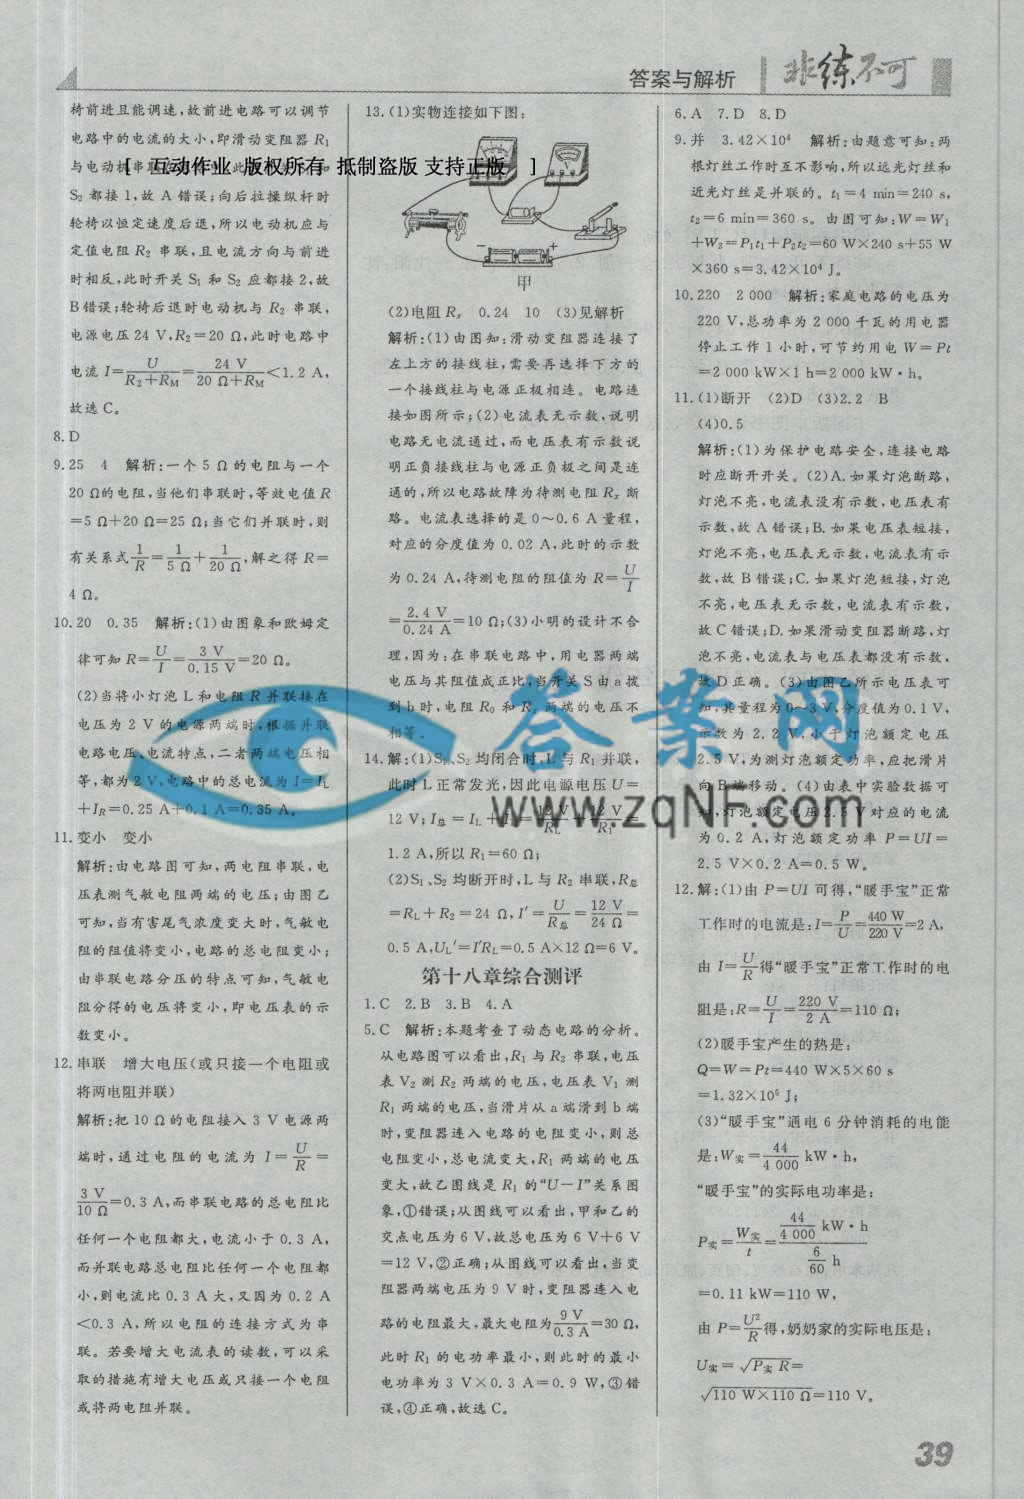 答案与解析
非练不可
[ 互动作业 版权所有 抵制盗版 支持正版 ]
椅前进且能调速,故前进电路可以调节
电路中的电流的大小,即滑动变阻器 R1
S2 都接 1,故 A 错误;向后拉操纵杆时
轮椅以恒定速度后退,所以电动机应与
定值电阻 R2 串联,且电流方向与前进
时相反,此时开关 S1 和 S2 应都接 2,故
B 错误;轮椅后退时电动机与 R2 串联,
电源电压 24 V,R2=20 Ω,此时电路中
电流 I=U/(R2+RM)=24 V/(20 Ω+RM)<1.2 A,
故选 C。
8.D
9.25 4 解析:一个 5 Ω 的电阻与一个
20 Ω的电阻,当他们串联时,等效电值 R
=5 Ω+20 Ω=25 Ω;当它们并联时,则
有关系式1/R=1/5 Ω+1/20 Ω,解之得 R=
4 Ω。
10.20 0.35 解析:(1)由图象和欧姆定
律可知 R=U/I=3 V/0.15 V=20 Ω。
(2)当将小灯泡 L 和电阻 R 并联接在
电压为 2 V 的电源两端时,根据并联
电路电压、电流特点,二者两端电压相
等,都为 2 V,电路中的总电流为 I=IL
+IR=0.25 A+0.1 A=0.35 A。
11.变小 变小
解析:由电路图可知,两电阻串联,电
压表测气敏电阻两端的电压;由图乙
可知,当有害尾气浓度变大时,气敏电
阻的阻值将变小,电路的总电阻变小;
由串联电路分压的特点可知,气敏电
阻分得的电压将变小,即电压表的示
数变小。
12.串联 增大电压(或只接一个电阻或
将两电阻并联)
解析:把 10 Ω 的电阻接入 3 V 电源两
端时,通过电阻的电流为 I=U/R=
3 V/10 Ω=0.3 A,而串联电路的总电阻比
任何一个电阻都大,电流小于 0.3 A,
而并联电路总电阻比任何一个电阻都
小,则电流比 0.3 A 大,又因为 0.2 A
<0.3 A,所以电阻的连接方式为串
联。若要增大电流表的读数,可以采
取的措施有增大电压或只接一个电阻
或将两电阻并联。
13.(1)实物连接如下图:
− +
甲
(2)电阻 Rx 0.24 10 (3)见解析
解析:(1)由图知:滑动变阻器连接了
左上方的接线柱,需要再选择下方的
一个接线柱与电源正极相连。电路连
接如图所示;(2)电流表无示数,说明
电路无电流通过,而电压表有示数说
明正负接线柱与电源正负极之间是连
通的,所以电路故障为待测电阻 Rx 断
路。电流表选择的是 0~0.6 A 量程,
对应的分度值为 0.02 A,此时的示数
为 0.24 A,待测电阻的阻值为 R=U/I
=2.4 V/0.24 A=10 Ω;(3)小明的设计不合
理,因为:在串联电路中,用电器两端
电压与其阻值成正比,当开关 S 由 a 拨
到 b 时,电阻 R0 和 Rx 两端的电压不
相等。
14.解:(1)S1、S2 均闭合时,L 与 R1 并联,
此时 L 正常发光,因此电源电压 U=
12 V;I总=IL+I1=12 V/RL+12 V/R1=
1.2 A,所以 R1=60 Ω;
(2)S1、S2 均断开时,L 与 R2 串联,R总
=RL+R2=24 Ω,I′=U/R总=12 V/24 Ω=
0.5 A,UL′=I′RL=0.5 A×12 Ω=6 V。
第十八章综合测评
1.C 2.B 3.B 4.A
5.C 解析:本题考查了动态电路的分析。
从电路图可以看出,R1 与 R2 串联,电压
表 V2 测 R2 两端的电压,电压表 V1 测
R1 两端的电压,当滑片从 a 端滑到 b 端
时,变阻器连入电路的电阻变小,则总
电阻变小,总电流变大,R1 两端的电压
变大,故乙图线是 R1 的“U-I”关系图
象,①错误;从图线可以看出,甲和乙的
交点电压为 6 V,故总电压为 6 V+6 V
=12 V,②正确;从图线可以看出,当变
阻器两端电压为 9 V 时,变阻器连入电
路的电阻最大,最大电阻为9 V/0.3 A=30 Ω,
此时 R1 的电功率最小,则此时的最小
电功率为 3 V×0.3 A=0.9 W,③错
误,④正确,故选 C。
6.A 7.D 8.D
9.并 3.42×10⁴ 解析:由题意可知:两
根灯丝工作时互不影响,所以远光灯丝和
近光灯丝是并联的。t1=4 min=240 s,
t2=6 min=360 s。由图可知:W=W1
+W2=P1t1+P2t2=60 W×240 s+55 W
×360 s=3.42×10⁴ J。
10.220 2 000 解析:家庭电路的电压为
220 V,总功率为 2 000 千瓦的用电器
停止工作 1 小时,可节约用电 W=Pt
=2 000 kW×1 h=2 000 kW·h。
11.(1)断开 (2)D (3)2.2 B
(4)0.5
解析:(1)为保护电路安全,连接电路
时应断开开关。(2)A.如果灯泡断路,
灯泡不亮,电流表没有示数,电压表有
示数,故 A 错误;B.如果电压表短接,
灯泡不亮,电压表无示数,电流表有示
数,故 B 错误;C.如果灯泡短接,灯泡
不亮,电压表无示数,电流表有示数,
故 C 错误;D.如果滑动变阻器断路,灯
泡不亮,电流表与电压表都没有示数,
故 D 正确。(3)由图乙所示电压表可
知,其量程为 0~3 V,分度值为 0.1 V,
示数为 2.2 V,小于灯泡额定电压
2.5 V,为测灯泡额定功率,应把滑片
向 B 端移动。(4)由表中实验数据可
知,灯泡额定电压 2.5 V 对应的电流
为 0.2 A,灯泡额定功率 P=UI=
2.5 V×0.2 A=0.5 W。
12.解:(1)由 P=UI 可得,“暖手宝”正常
工作时的电流是:I=P/U=440 W/220 V=2 A,
由 I=U/R得“暖手宝”正常工作时的电
阻是:R=U/I=220 V/2 A=110 Ω;
(2)暖手宝产生的热是:
Q=W=Pt=440 W×5×60 s
=1.32×10⁵ J;
(3)“暖手宝”通电 6 分钟消耗的电能
是:W实=44/4 000 kW·h,
“暖手宝”的实际电功率是:
P实=W实/t=(44/4 000 kW·h)/(6/60 h)
=0.11 kW=110 W,
由 P=U²/R得,奶奶家的实际电压是:
U实=√(P实 R)=
√(110 W×110 Ω)=110 V。
答案网
www.zqNF.com
39